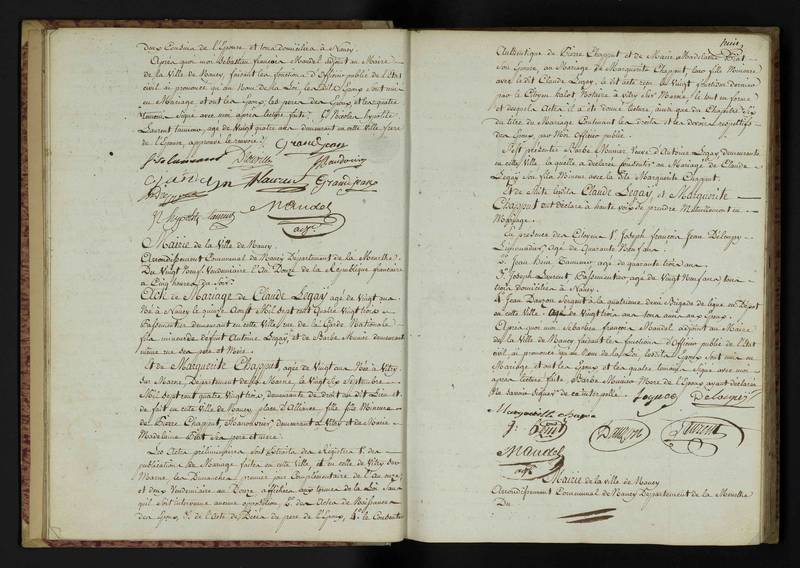 deux Cousins de l'Epouse et tous domiciliés à Nancy.
Après quoi moi Sebastien françois Mandel adjoint au Maire
de la Ville de Nancy, faisant les fonctions d'Officier public de l'Etat
civil ai prononcé qu'au Nom de la Loi, lesdits Epoux sont unis
en Mariage et ont les Epoux, les peres des Epoux et les quatre
temoins Signé avec moi après lecture faite
Laurent temoin, agé de Vingt quatre ans demeurant en cette Ville, frere
de l'Epouse
Grandjean
Laurent
Grandjean
Mandel
adjt
Mairie de la Ville de Nancy
Arrondissement Communal de Nancy Département de la Meurthe
Du Vingt Neuf Vendemiaire l'An Douze de la République française
à Cinq heures du Soir.
Acte de Mariage de Claude Legay agé de Vingt ans
Né à Nancy le quinze Aoust Mil Sept cent Quatre Vingt trois
Passementier demeurant en cette Ville, rue de la Garde Nationale
fils mineur de défunt Antoine Legay, et de Barbe Munier demeurant
même rue ses pere et Mere.
Et de Marguerite Chappout, agée de Vingt ans Née à Vitry
Sur Marne Département de la Marne, le Vingt Six Septembre
Mil Sept cent quatre Vingt trois, demeurante de droit au dit Lieu et
de fait en cette Ville de Nancy, place d'Alliance, fille Mineure
de Pierre Chappout, Manoeuvre, demeurant à Vitry et de Marie
Madelaine Piat ses pere et mere.
Les Actes préliminaires sont Extraits des Régistres 1° des
publications de Mariage faites en cette Ville, et en celle de Vitry Sur
Marne les Dimanches premier jour Complementaire de l'An onze
et deux Vendemiaire an Douze affichées aux termes de la Loi sans
qu'il soit intervenu aucune opposition, 2° des Actes de Naissance
des Epoux, 3° de l'acte de Décès du pere de l'Epoux, 4° le Consentement
Authentique de Pierre Chappout et de Marie Madelaine Piat
Son Epouse, au Mariage de Marguerite Chappout, leur fille Mineure
avec le dit Claude Legay, le dit acte reçu le Vingt fructidor dernier
par le Citoyen Notaire à Vitry Sur Marne, le tout en forme
et desquels Actes il a été donné lecture, ainsi que du Chapitre Six
du titre du Mariage Contenant les droits et les devoirs respectifs
des Epoux, par Moi Officier public.
S'est présentée Barbe Munier Veuve d'Antoine Legay demeurante
en cette Ville la quelle a déclaré Consentir au Mariage de Claude
Legay Son fils Mineur avec la dite Marguerite Chappout.
Et de Suite lesdits Claude Legay et Marguerite
Chappout ont déclaré à haute voix de prendre Mutuellement en
Mariage.
En presence des Citoyens 1° Joseph françois Jean Deloupy
Limonadier, agé de Quarante Neuf ans
2° Jean agé de quarante trois ans
3° Joseph Laurent, Passementier agé de Vingt Neuf ans tous
trois domiciliés à Nancy.
4° Jean Dauzon Sergent à la quatrieme demi Brigade de ligne en Dépôt
en cette Ville agé de Vingt trois ans tous amis aux Epoux.
Après quoi moi Sebastien françois Mandel adjoint au Maire
de la Ville de Nancy faisant les fonctions d'Officier public de l'Etat
civil, ai prononcé qu'au Nom de la Loi, lesdits Epoux sont unis en
Mariage et ont les Epoux et les quatre temoins Signé avec moi
après lecture faite, Barbe Munier Mere de l'Epoux ayant déclaré
Ne Savoir Signer de ce interpellée
Dauzon
Laurent
Mandel
adjt
Mairie de la ville de Nancy
Arrondissement Communal de Nancy Département de la Meurthe
Du